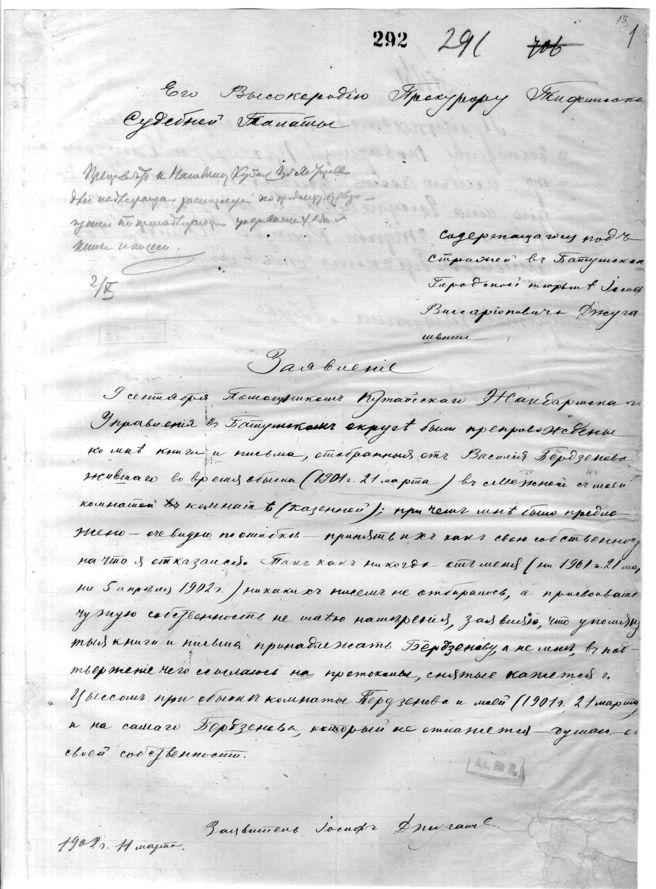 292 291 706 13 1
Его Высокородію Прокурору Тифлисской
Судебной Палаты
2/IX
содержащагося подъ
стражей въ Батумской
Городской тюрьмѣ Іосифа
Виссаріоновича Джуга
швили
Заявленіе
9 сентября Помощникомъ Кутаисскаго Жандармскаго
Управленія въ Батумскомъ округѣ были препровождены
ко мнѣ книги и письма, отобранныя отъ Василія Бердзенова
жившаго во время обыска (1901 г. 21 марта) въ смежной съ моей
комнатой комнатѣ (казенной); при чемъ мнѣ было предло
жено – очевидно по ошибкѣ – принять ихъ какъ свою собственность
на что я отказался. Такъ какъ никогда отъ меня (ни 1901 г. 21 мар.
ни 5 апреля 1902 г.) никакихъ писемъ не отбиралось, а присвоивать
чужую собственность не имѣю намѣренія, заявляю, что упомяну
тыя книги и письма принадлежатъ Бердзенову, а не мнѣ, въ под
твержденіе чего ссылаюсь на протоколы, снятые кажется г.
при обыскѣ комнаты Бердзенова и моей (1901 г. 21 марта)
и на самаго Бердзенова, который не откажется – думаю – отъ
своей собственности.
Заявитель Іосифъ
1902 г. 11 марта.